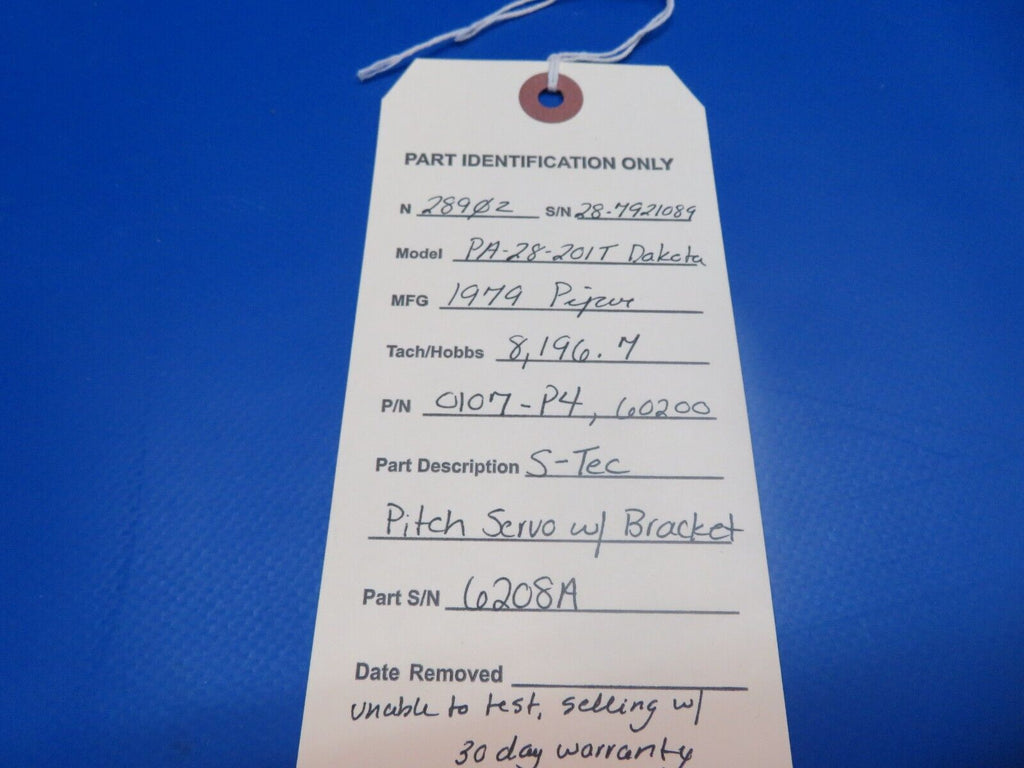 PART IDENTIFICATION ONLY
N 2890Z S/N 28-7921089
Model PA-28-201T Dakota
MFG 1979 Piper
Tach/Hobbs 8,196.7
P/N 0107-P4, 60200
Part Description S-Tec
Pitch Servo w/ Bracket
Part S/N 6208A
Date Removed
unable to test, selling w/
30 day warranty